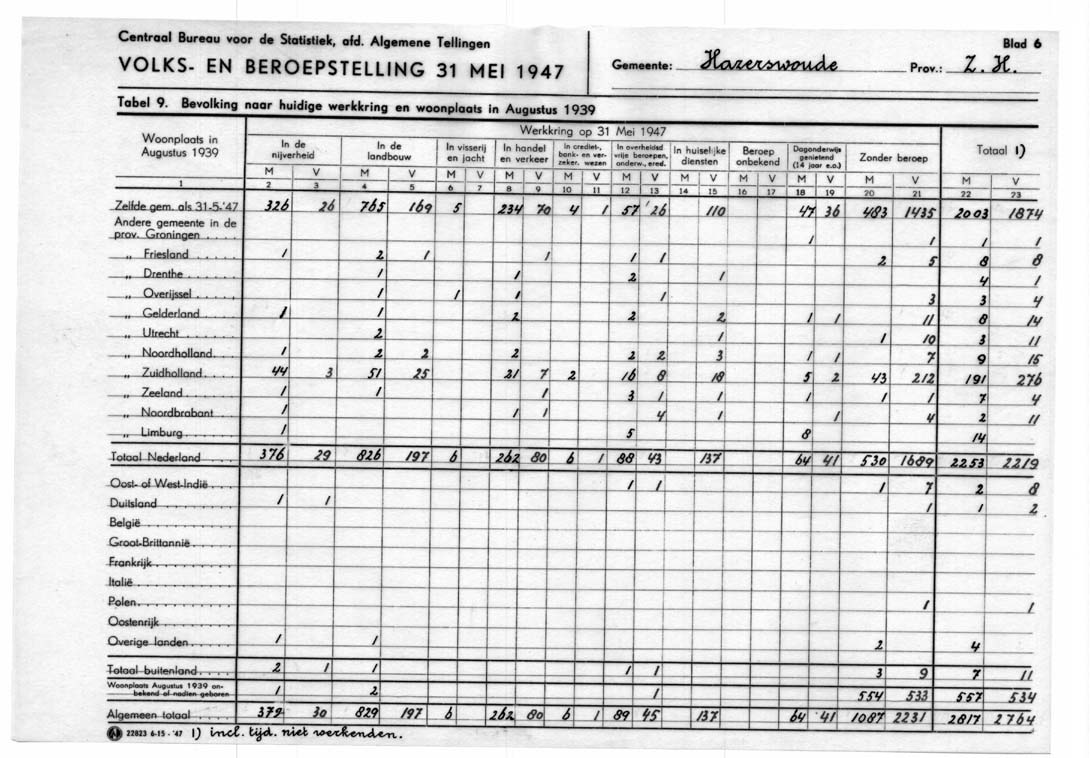 Centraal Bureau voor de Statistiek, afd. Algemene Tellingen
VOLKS- EN BEROEPSTELLING 31 MEI 1947
Gemeente: Hazerswoude Prov.: Z. H.
Blad 6
Tabel 9. Bevolking naar huidige werkkring en woonplaats in Augustus 1939
Woonplaats in Augustus 1939
Werkkring op 31 Mei 1947
In de nijverheid In de landbouw In visserij en jacht In handel en verkeer In crediet-, bank- en verzeker. wezen In overheidsd vrije beroepen, onderw., ered. In huiselijke diensten Beroep onbekend Dagonderwijs genietend (14 jaar e.o.) Zonder beroep Totaal 1)
M V M V M V M V M V M V M V M V M V M V M V
1 2 3 4 5 6 7 8 9 10 11 12 13 14 15 16 17 18 19 20 21 22 23
Zelfde gem. als 31-5-'47 326 26 765 169 5 234 70 4 1 57 26 110 47 36 483 1435 2003 1874
Andere gemeente in de
prov. Groningen 1 1 1 1
„ Friesland 1 2 1 1 1 1 2 5 8 8
„ Drenthe 1 1 2 1 4 1
„ Overijssel 1 1 1 1 3 3 4
„ Gelderland 1 1 2 2 2 1 1 11 8 14
„ Utrecht 2 1 1 10 3 11
„ Noordholland 1 2 2 2 2 2 3 1 1 7 9 15
„ Zuidholland 44 3 51 25 21 7 2 16 8 18 5 2 43 212 191 276
„ Zeeland 1 1 1 3 1 1 1 1 1 7 4
„ Noordbrabant 1 1 1 4 1 1 4 2 11
„ Limburg 1 5 8 14
Totaal Nederland 376 29 826 197 6 262 80 6 1 88 43 137 64 41 530 1689 2253 2219
Oost- of West-Indië 1 1 1 7 2 8
Duitsland 1 1 1 1 2
België
Groot-Brittannië
Frankrijk
Italië
Polen 1 1
Oostenrijk
Overige landen 1 1 2 4
Totaal buitenland 2 1 1 1 1 3 9 7 11
Woonplaats Augustus 1939 onbekend of nadien geboren 1 2 1 554 533 557 534
Algemeen totaal 379 30 829 197 6 262 80 6 1 89 45 137 64 41 1087 2231 2817 2764
22823 6-15-'47 1) incl. tijd. niet werkenden.